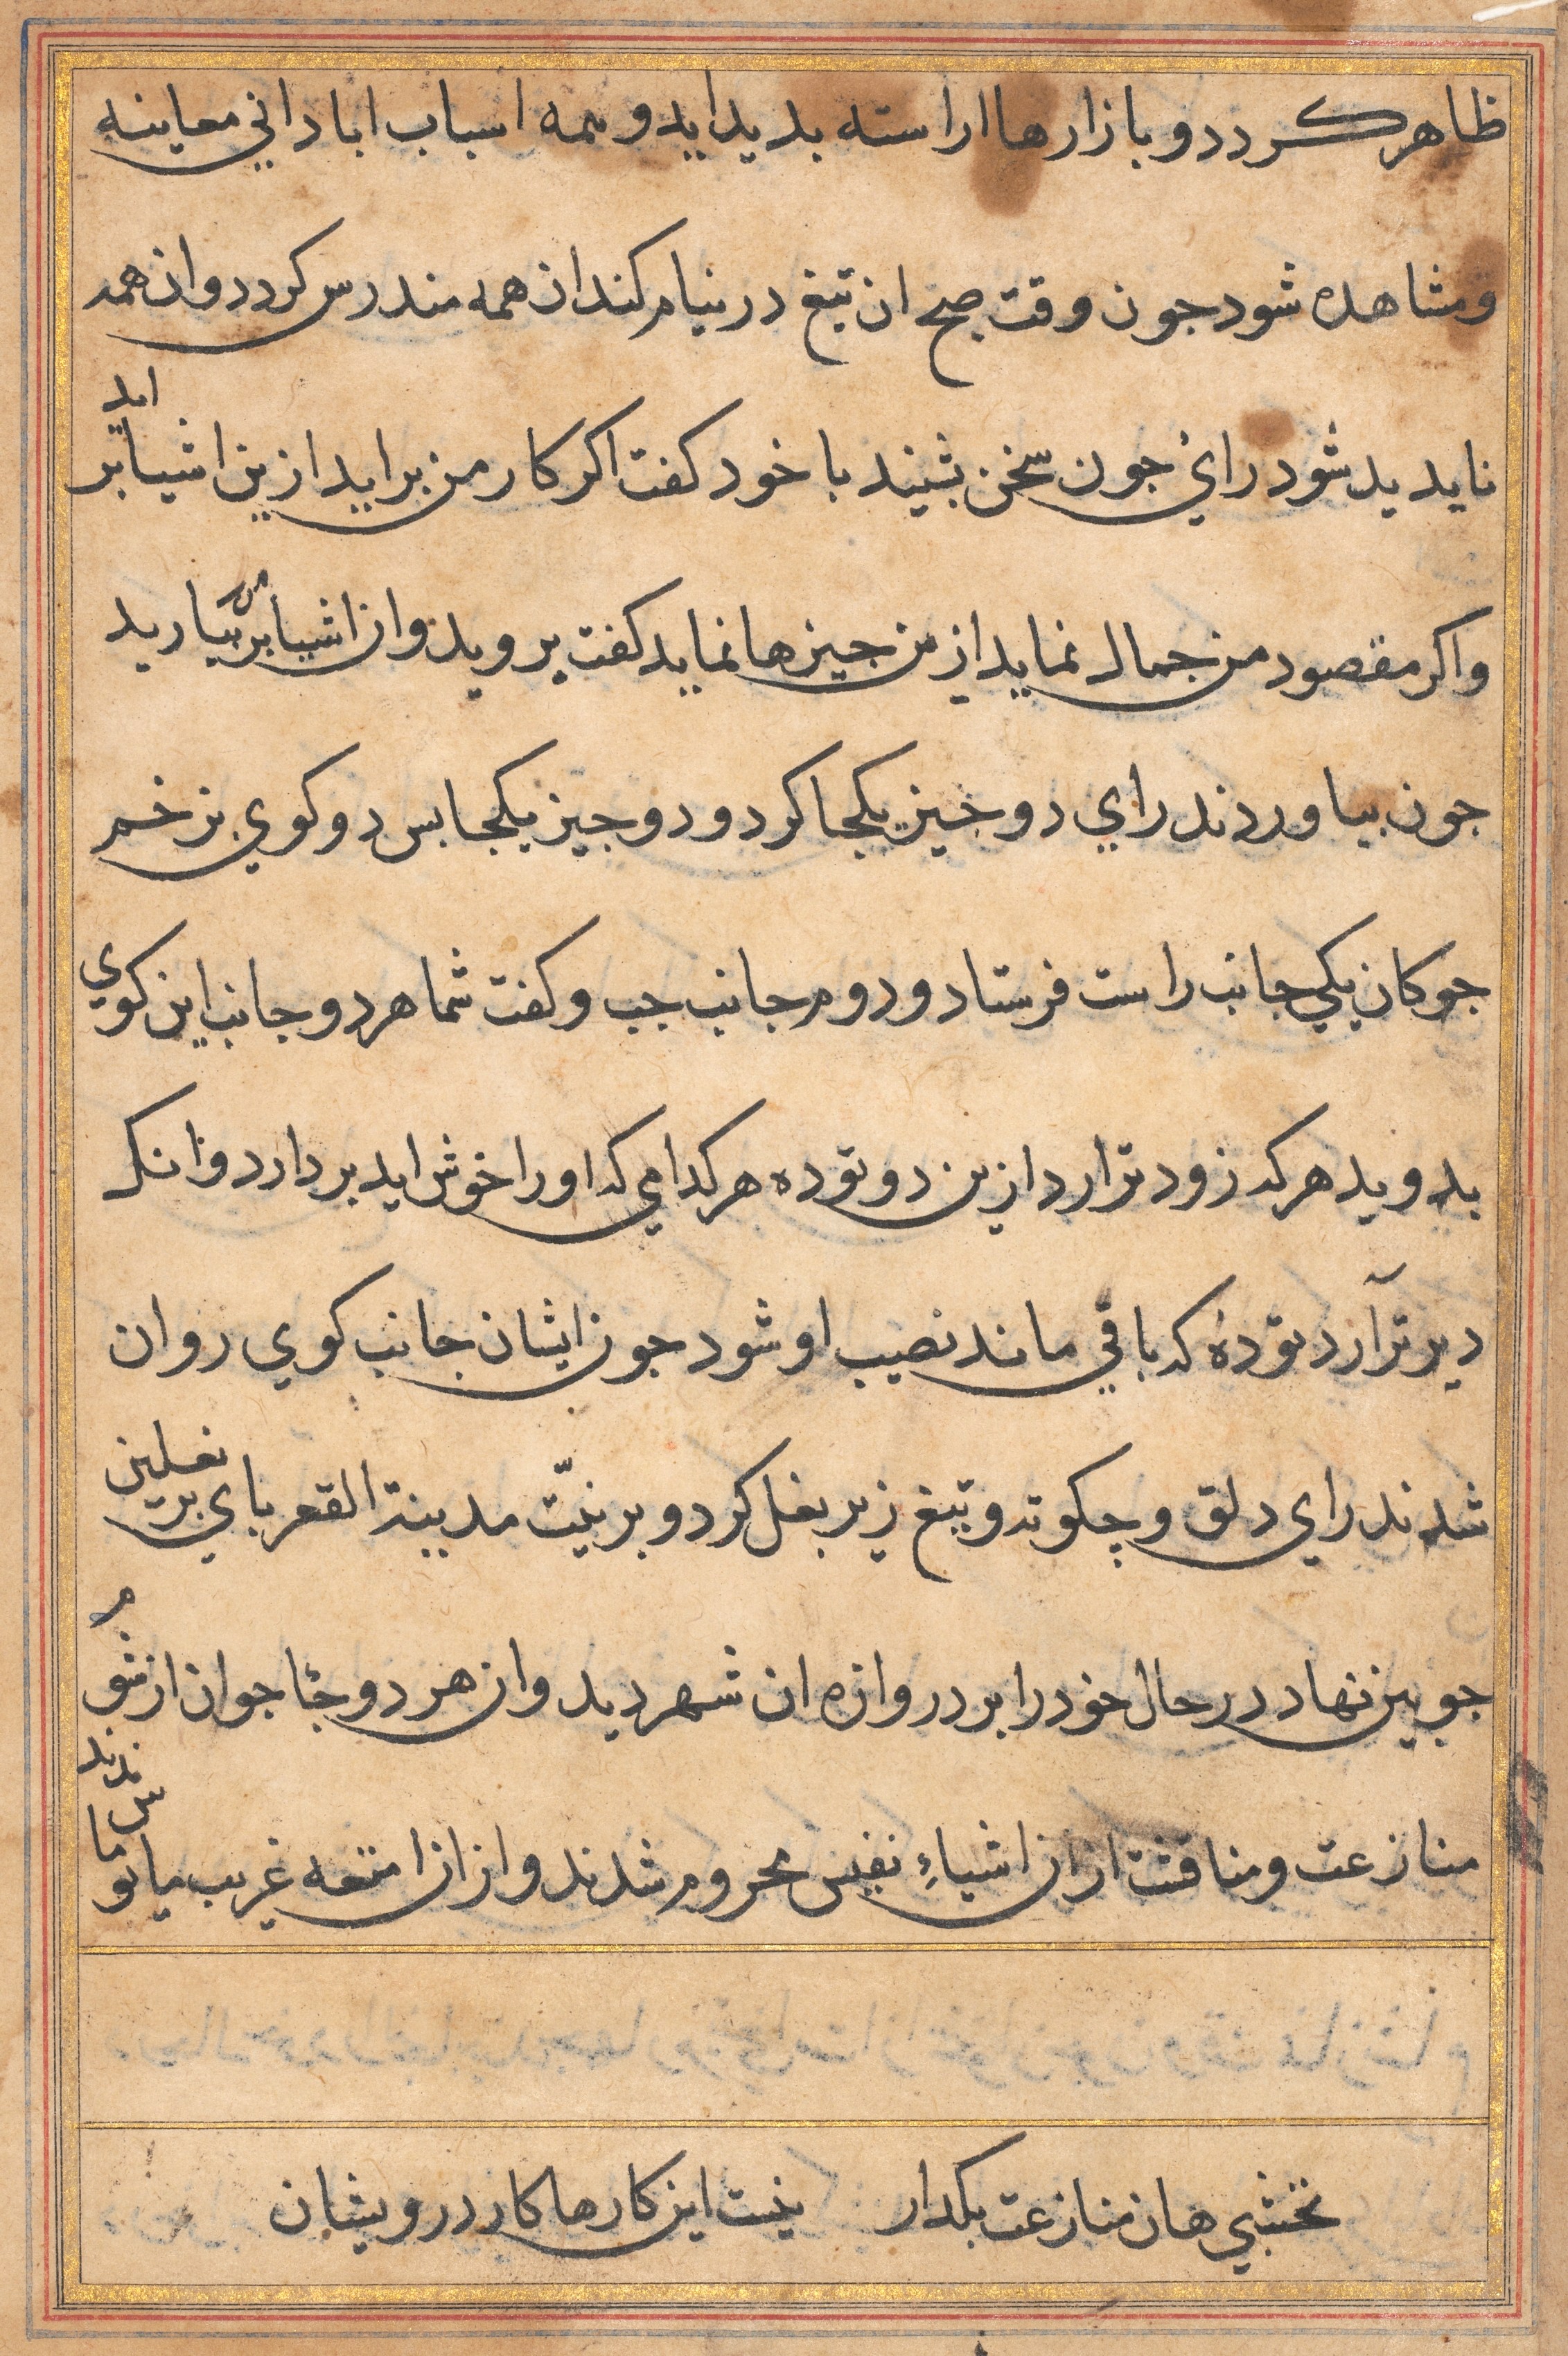 ظاهر کردد و بازارها اراسته بدید اید و همه اسباب ابادانی معاینه
و مشاهده شود جون وقت صبح ان تیغ در نیام کند ان همه مندرس کردد و ان همه
نابدید شود رای جون سخن بشنید با خود کفت اکر کار من براید ازین اشیا براید
و اکر مقصود من جمال نماید ازین جیزها نماید کفت بروید و ان اشیا بر من بیارید
جون بیاوردند رای دو جیز یکجا کرد و دو جیز یکجا بس دو کوی بزخم
جوکان یکی جانب راست فرستاد و دوم جانب جب و کفت شما هر دو جانب این کوی
بدوید هر که زودتر ارد ازین دو توده هر کدامی که او را خوش اید بردارد و انکه
دیرتر آرد تودهٔ که باقی ماند نصیب او شود جون ایشان جانب کوی روان
شدند رای دلق و چکوته و تیغ زیر بغل کرد و بر نیّت مدینة القعر بای بر نعلین
جوبین نهاد در حال خود را بر دروازه ان شهر دید و ان هر دو جوان از شوم
منازعت و مناقشت از ان اشیاءِ نفیس محروم شدند و از ان امتعه غریب مایوس ماندند
نخشبی هان منازعت بکدار نیست این کارها کار درویشان